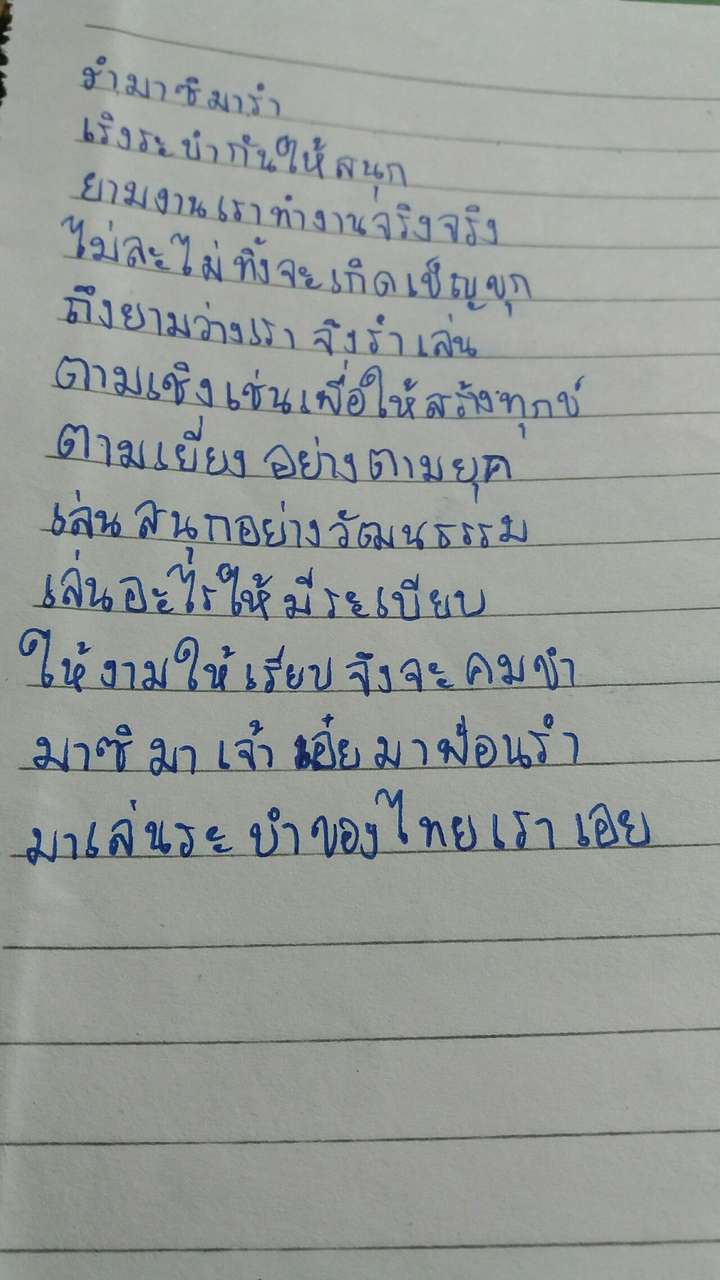 รำมาซิมารำ
เริงระบำกันให้สนุก
ยามงานเราทำงานจริงจริง
ไม่ละไม่ทิ้งจะเกิดเข็ญขุก
ถึงยามว่างเรา จึงรำเล่น
ตามเชิงเช่นเพื่อให้สร้างทุกข์
ตามเยี่ยง อย่างตามยุค
เล่น สนุกอย่างวัฒนธรรม
เล่นอะไรให้มีระเบียบ
ให้งามให้เรียบจึงจะคมขำ
มาซิ มา เจ้า เอ๋ย มาฟ้อนรำ
มาเล่นระบำของไทยเราเอย